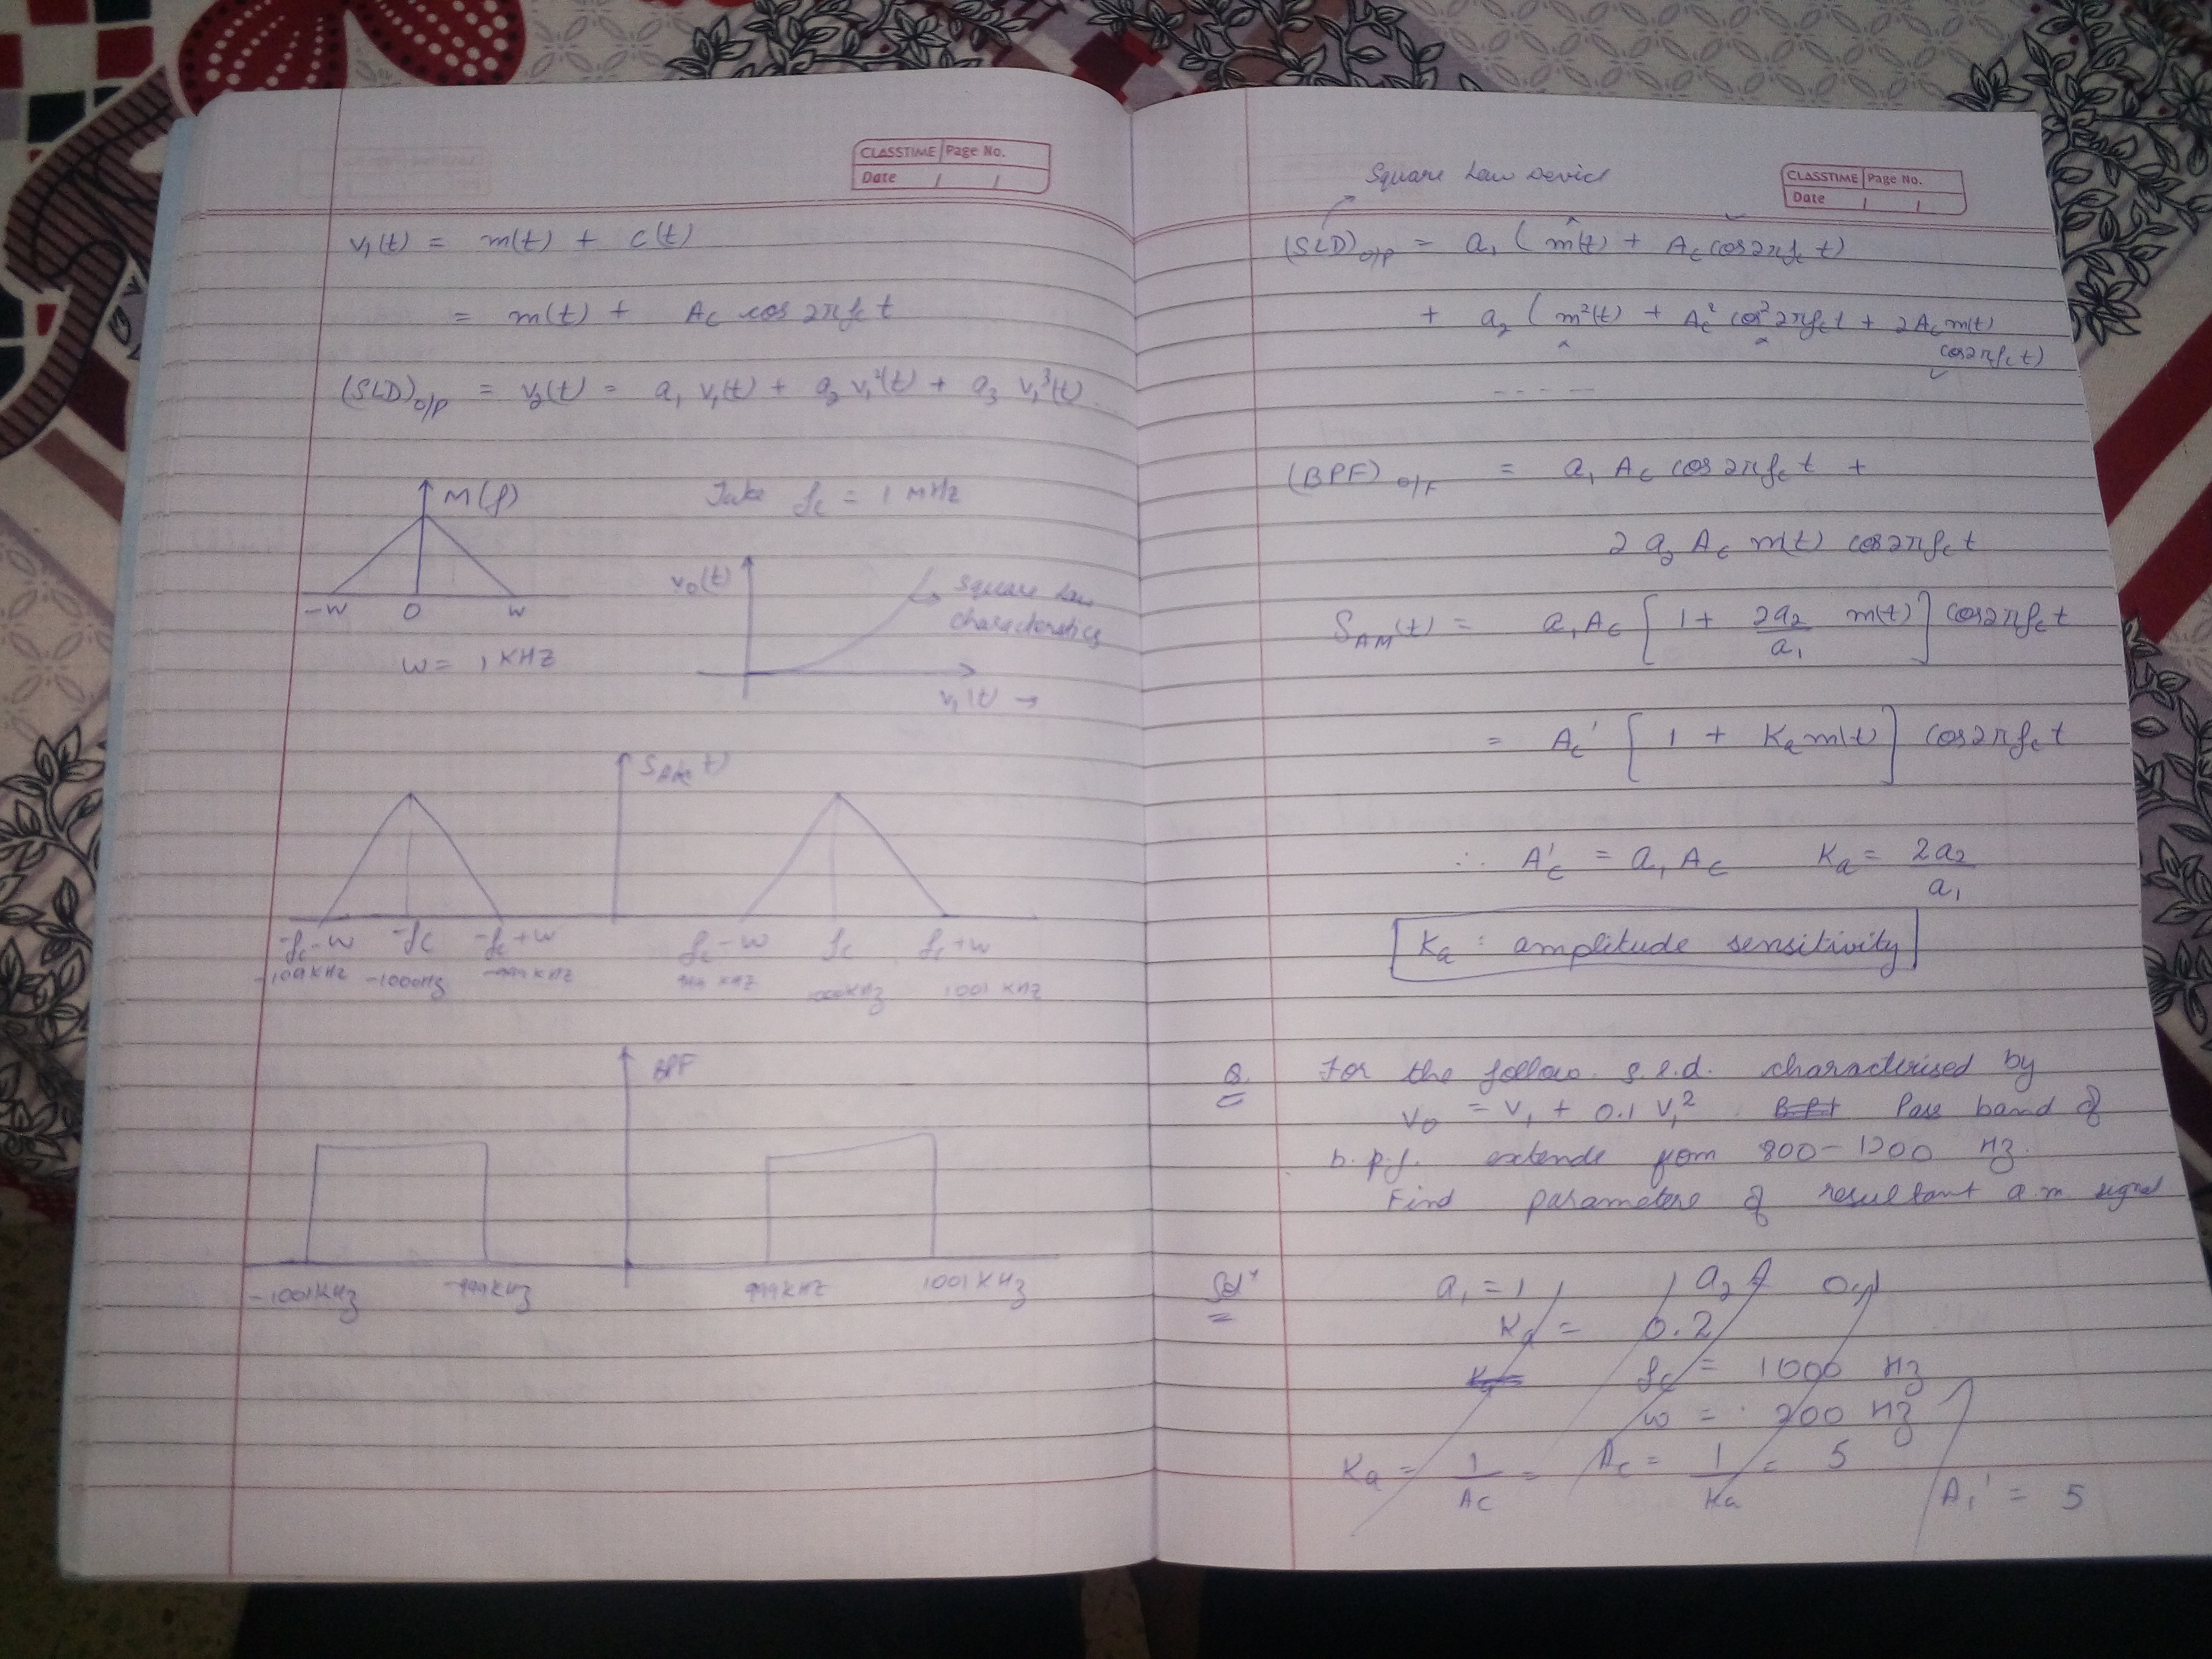 CLASSTIME Page No.
Date / /
v₁(t) = m(t) + c(t)
= m(t) + Ac cos 2πfc t
(SLD)o/p = v₂(t) = a₁ v₁(t) + a₂ v₁²(t) + a₃ v₁³(t)
M(f)
Take fc = 1 MHz
-W 0 W
W = 1 KHZ
v₀(t)
Square Law
characteristics
v₁(t) →
-fc-W -fc -fc+W fc-W fc fc+W
-1000Hz -999 KHZ 999 KHZ 1001 KHZ
BPF
-1001KHz -999KHz 999KHZ 1001KHz
Square Law Device
CLASSTIME Page No.
Date / /
(SLD)o/p = a₁ ( m(t) + Ac cos2πfc t)
+ a₂ ( m²(t) + Ac² cos²2πfct + 2Ac m(t)
cos2πfc t)
-----
(BPF)o/p = a₁ Ac cos2πfc t +
2 a₂ Ac m(t) cos2πfc t
S_AM(t) = a₁Ac [ 1 + 2a₂/a₁ m(t) ] cos2πfc t
= Ac' [ 1 + Ka m(t) ] cos2πfc t
∴ Ac' = a₁ Ac Ka = 2a₂/a₁
Ka : amplitude sensitivity
Q. For the follow. s.l.d. characterised by
v₀ = v₁ + 0.1 v₁² Pass band of
b.p.f. extends from 800-1200 Hz.
Find parameters of resultant a.m signal
Solⁿ a₁ = 1, a₂ = 0.1
Ka = 0.2
fc = 1000 Hz
W = 200 Hz
Ka = 1/Ac = Ac = 1/Ka = 5
A₁' = 5